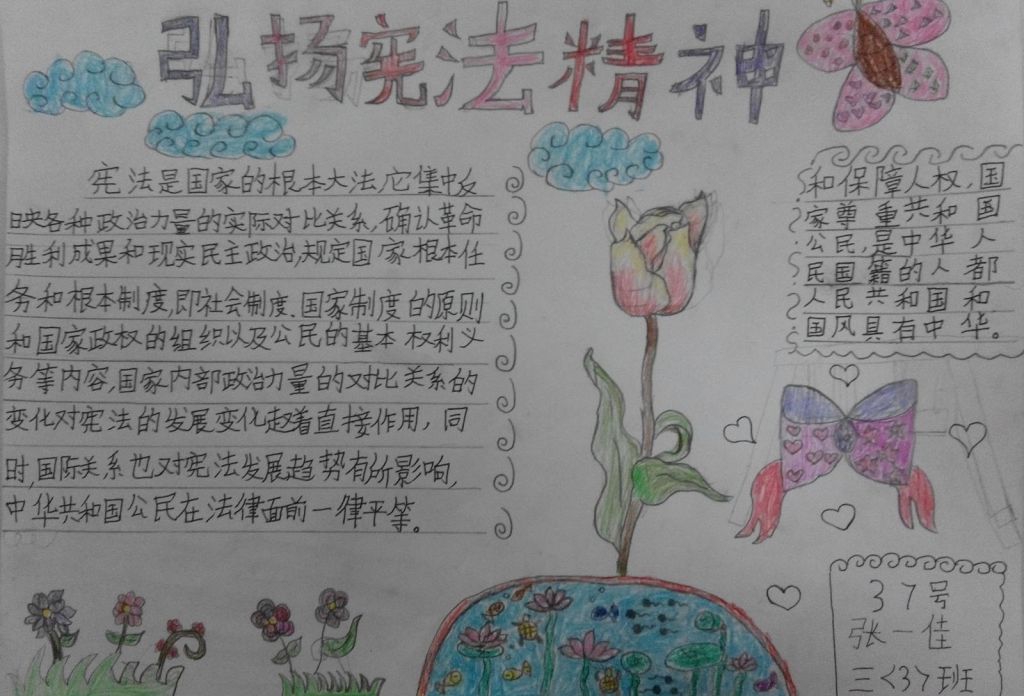 弘扬宪法精神
宪法是国家的根本大法,它集中反
映各种政治力量的实际对比关系,确认革命
胜利成果和现实民主政治,规定国家根本任
务和根本制度,即社会制度、国家制度的原则
和国家政权的组织以及公民的基本权利义
务等内容,国家内部政治力量的对比关系的
变化对宪法的发展变化起着直接作用,同
时,国际关系也对宪法发展趋势有所影响,
中华共和国公民在法律面前一律平等。
和保障人权,国
家尊重共和国
公民,是中华人
民国籍的人都
人民共和国和
国凡具有中华。
37号
张一佳
三<3>班